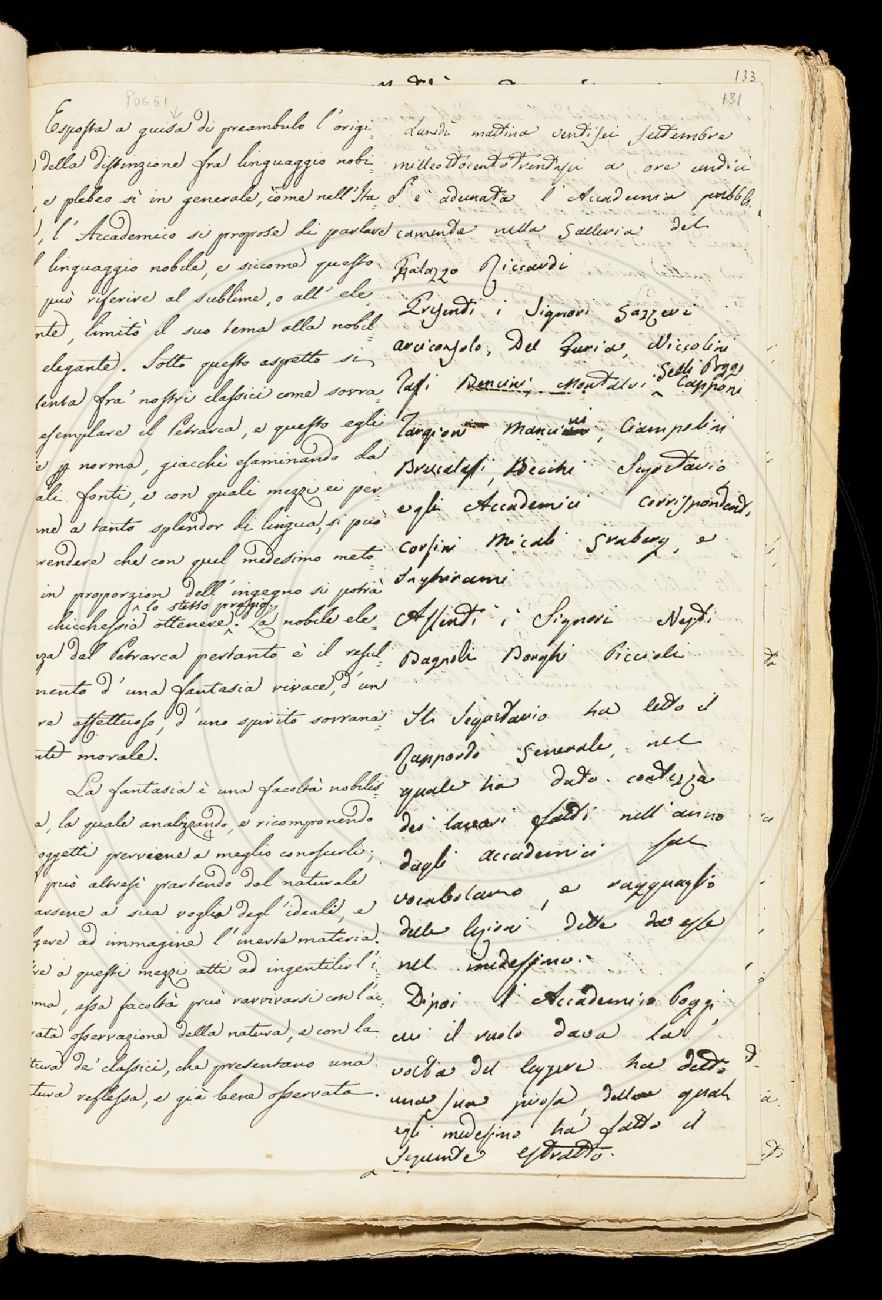 133
131
POGGI
Esposta a guisa di preambulo l'origi-
della distinzione fra linguaggio nobi-
e plebeo sì in generale, come nell'Ita
, l'Accademico si propose di parlare
linguaggio nobile, e siccome questo
può riferire al sublime, o all'ele
nte, limitò il suo tema alla nobil-
elegante. Sotto questo aspetto si
senta fra' nostri classici come sovra
esemplare il Petrarca, e questo egli
norma, giacchè esaminando da
ali fonti, e con quali mezzi ei per
ne a tanto splendor di lingua, si può
rendere che con quel medesimo meto-
in proporzion dell'ingegno si potrà
chicchessia ottenere lo stesso pregio. La nobile ele-
za del Petrarca pertanto è il resul-
mento d'una fantasia vivace, d'un
re affettuoso, d'uno spirito sovrana
nte morale.
La fantasia è una facoltà nobilis-
a, la quale analizzando, e ricomponendo
oggetti perviene a meglio conoscerli;
può altresì partendo dal naturale
arsene a sua voglia degl'ideali, e
gere ad immagine l'inerte materia.
re a questi mezzi atti ad ingentilir l'i-
ma, essa facoltà può ravvivarsi con l'ac-
rata osservazione della natura, e con la
tura de' classici, che presentano una
tura reflessa, e già bene osservata.
Lunedì mattina ventisei settembre
milleottocentotrentasei a ore undici
s'è adunata l'Accademia pubbli
camente nella Galleria del
Palazzo Riccardi
Presenti i Signori Gazzeri
arciconsolo, Del Furia, Niccolini
Tassi Bencini, Montalvi Gelli Poggi Capponi
Targioni Mancini, Ciampolini
Brucalassi, Becchi Segretario
e gli Accademici corrispondenti,
Corsini Micali Graberg, e
Inghirami
Assenti i Signori Nesti
Bagnoli Borghi Piccioli
Il Segretario ha letto il
Rapporto Generale, nel
quale ha dato contezza
dei lavori fatti nell'anno
dagli accademici sul
vocabolario, e ragguaglio
delle lezioni dette da essi
nel medesimo.
Dipoi l'Accademico Poggi,
cui il ruolo dava la
volta del leggere ha detto
una sua prosa, della quale
egli medesimo ha fatto il
seguente estratto.